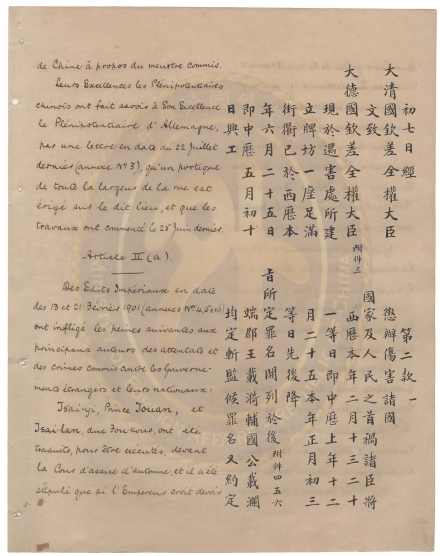 de Chine à propos du meurtre commis.
Leurs Excellences les Plénipotentiaires
chinois ont fait savoir à Son Excellence
le Plénipotentiaire d'Allemagne,
par une lettre en date du 22 juillet
dernier (annexe N° 3), qu'un portique
de toute la largeur de la rue est
érigé sur le dit lieu, et que les
travaux ont commencé le 25 Juin dernier.
Article II (a).
Des Édits Impériaux en date
des 13 et 21 Février 1901 (annexes Nos 4, 5 et 6)
ont infligé les peines suivantes aux
principaux auteurs des attentats et
des crimes commis contre les Gouverne-
ments étrangers et leurs nationaux:
Tsai-yi, Prince Touan, et
Tsai-lan, duc Fou-kouo, ont été
traduits, pour être exécutés, devant
la Cour d'assise d'automne, et il a été
stipulé que si l'Empereur croit devoir
初七日經
大清國欽差全權大臣
文致
大德國欽差全權大臣附件三
現於遇害處所建
立牌坊一座足滿
街衢已於西歷本
年六月二十五日
即中歷五月初十
日興工
第二款一
懲辦傷害諸國
國家及人民之首禍諸臣將
西歷本年二月十三二十
一等日即中歷上年十二
月二十五本年正月初三
等日先後降
旨所定罪名開列於後附件四五六
端郡王載漪輔國公載瀾
均定斬監候罪名又約定